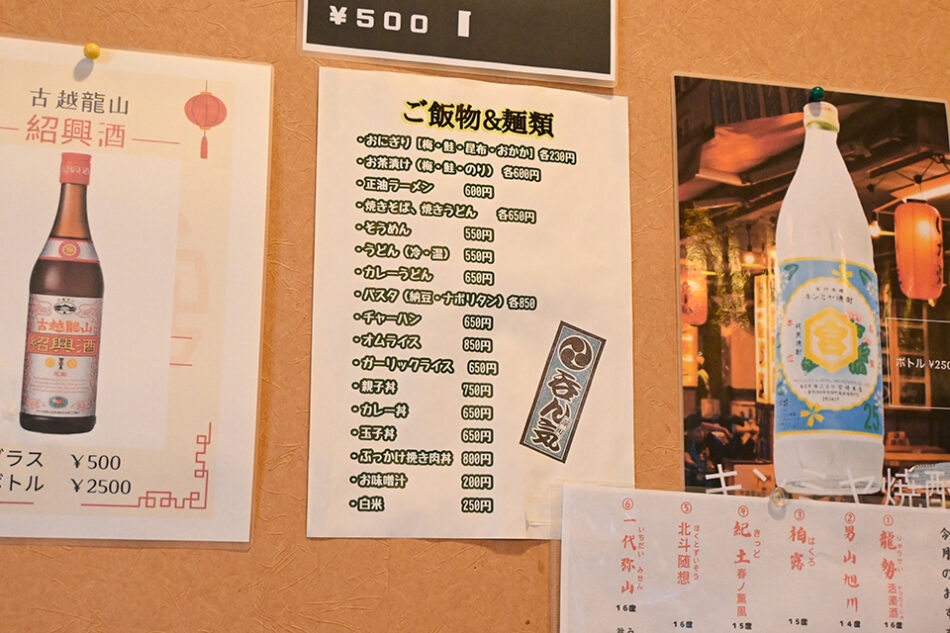 ¥500
古越龍山
紹興酒
古越龍山
紹興酒
グラス ¥500
ボトル ¥2500
ご飯物&麺類
・おにぎり【梅・鮭・昆布・おかか】各230円
・お茶漬け（梅・鮭・のり）各600円
・正油ラーメン 600円
・焼きそば、焼きうどん 各650円
・そうめん 550円
・うどん（冷・温） 550円
・カレーうどん 650円
・パスタ（納豆・ナポリタン）各850
・チャーハン 650円
・オムライス 850円
・ガーリックライス 650円
・親子丼 750円
・カレー丼 650円
・玉子丼 650円
・ぶっかけ挽き肉丼 800円
・お味噌汁 200円
・白米 250円
キンミヤ焼酎
宮
25
ボトル ¥250
キンミヤ焼酎
①龍勢 りゅうせい 活濁酒 16度
②男山旭川 14度
③柏露 はくろ 15度
④紀土 きっど 春ノ薫風 15度
⑤北斗随想 ほくとずいそう 16度
⑥一代弥山 いちだい みせん 16度